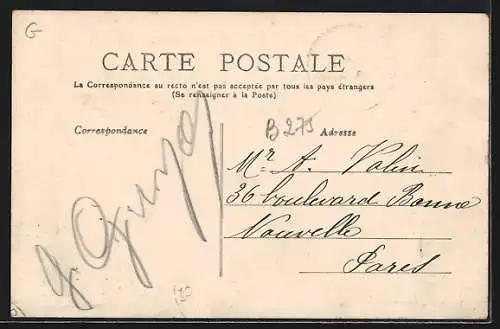 G
CARTE POSTALE
La Correspondance au recto n'est pas acceptée par tous les pays étrangers
(Se renseigner à la Poste)
Correspondance
B 279
Adresse
Mr. A. Valin
36 boulevard Bonne
Nouvelle
Paris